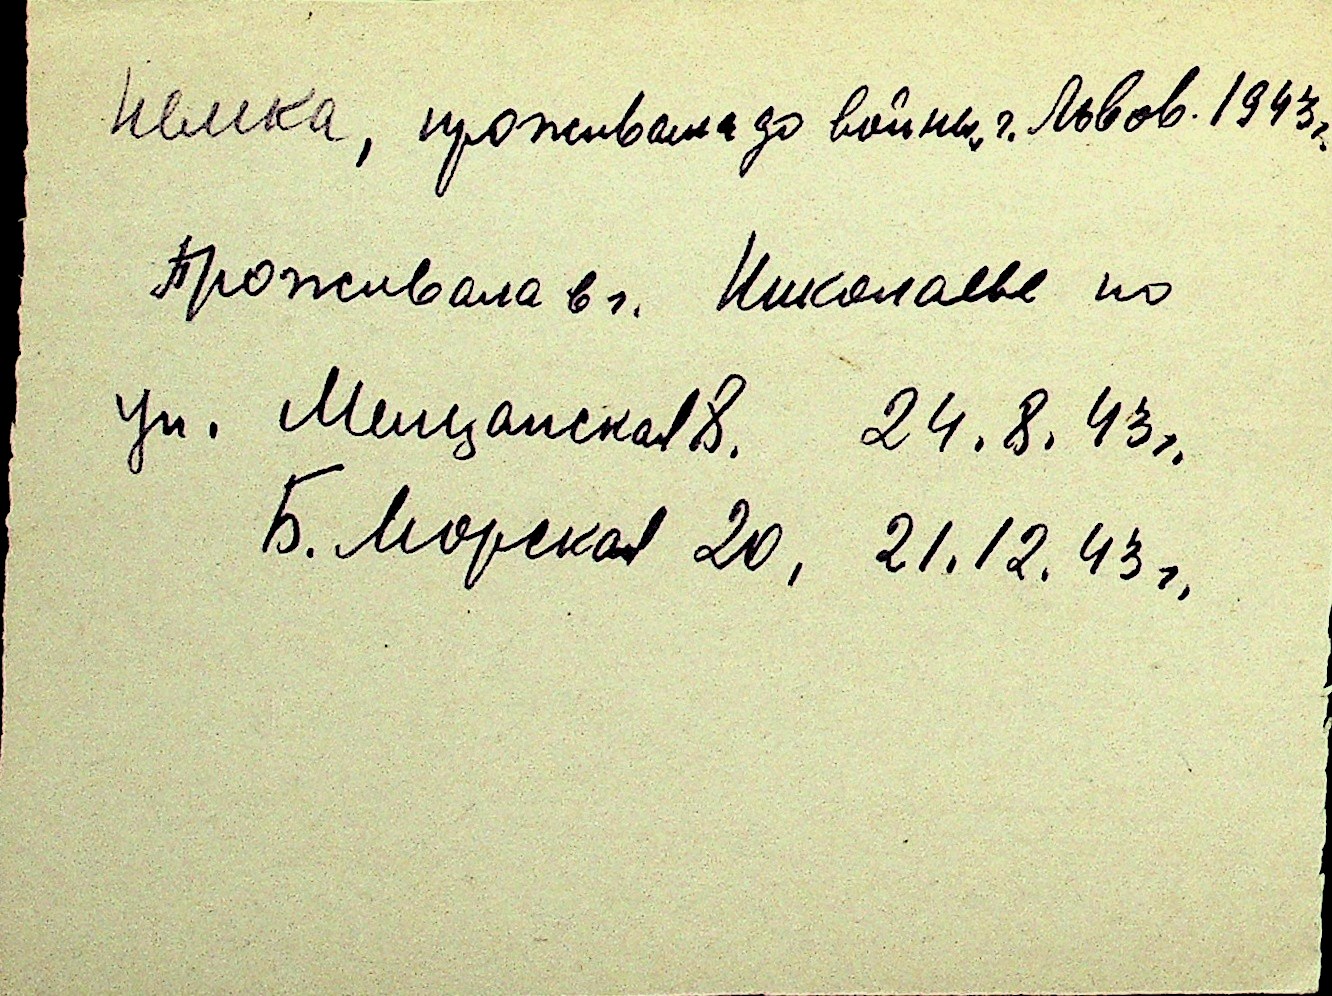 Немка, проживала до войны, г. Львов. 1943г.
Проживала в г. Николаеве по
ул. Мещанская 8. 24.8.43г.
Б. Морская 20, 21.12.43г.